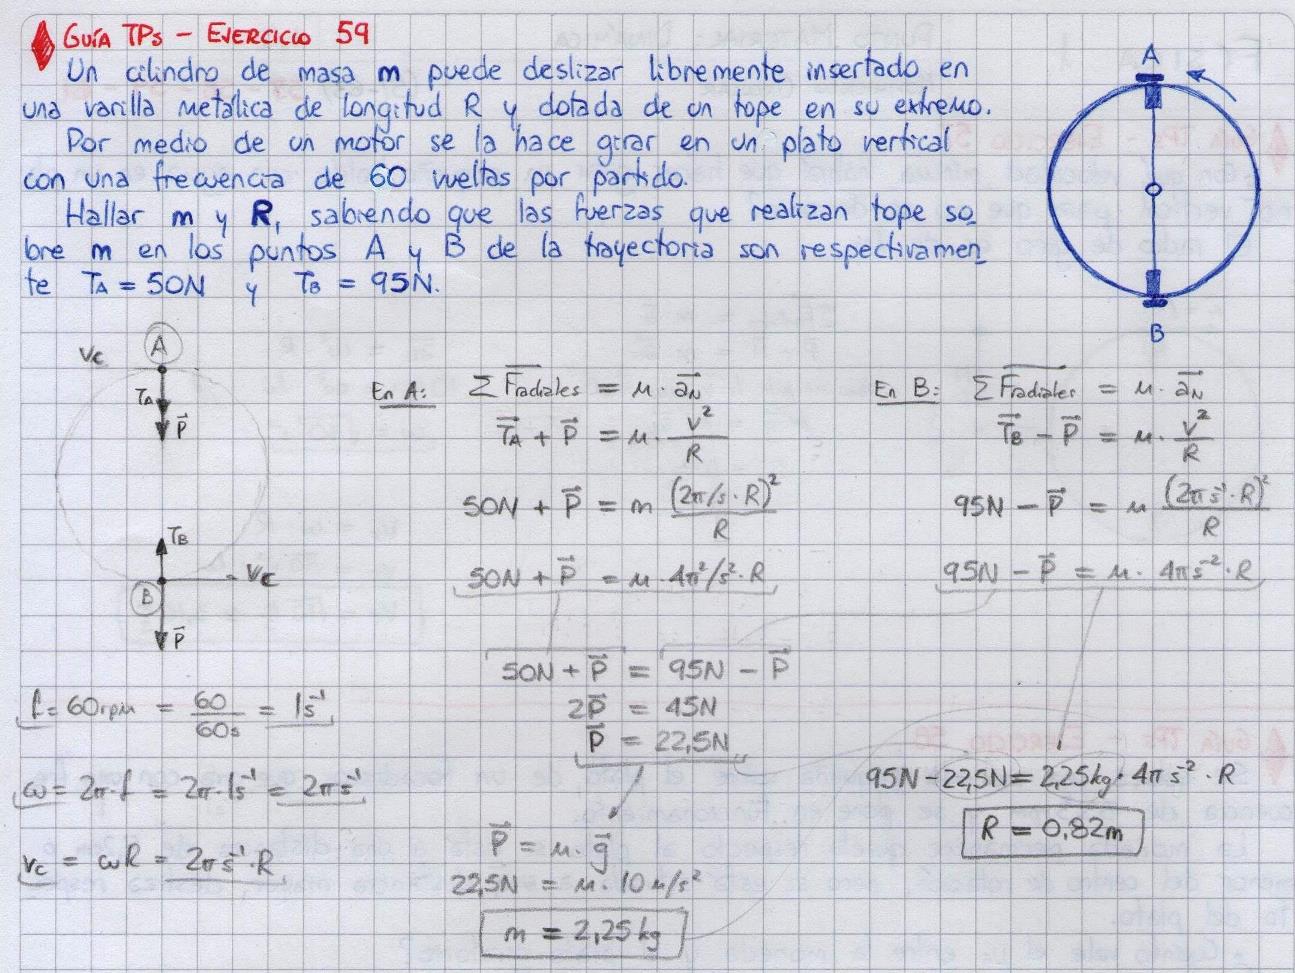 GUÍA TPs - EJERCICIO 59
Un cilindro de masa m puede deslizar libremente insertado en
una varilla metálica de longitud R y dotada de un tope en su extremo.
Por medio de un motor se la hace girar en un plato vertical
con una frecuencia de 60 vueltas por partido.
Hallar m y R, sabiendo que las fuerzas que realizan tope so
bre m en los puntos A y B de la trayectoria son respectivamen
te TA = 50N y TB = 95N.
A
B
Vc
A
TA
P
TB
Vc
B
P
f = 60rpm = 60/60s = 1s⁻¹
ω = 2π·f = 2π·1s⁻¹ = 2πs⁻¹
Vc = ωR = 2πs⁻¹·R
En A: Σ Fradiales = m·aN
TA + P = m·v²/R
50N + P = m (2π/s·R)²/R
50N + P = m·4π²/s²·R
En B: Σ Fradiales = m·aN
TB - P = m·v²/R
95N - P = m (2πs⁻¹·R)²/R
95N - P = m·4πs⁻²·R
50N + P = 95N - P
2P = 45N
P = 22,5N
P = m·g
22,5N = m·10m/s²
m = 2,25kg
95N - 22,5N = 2,25kg·4πs⁻²·R
R = 0,82m